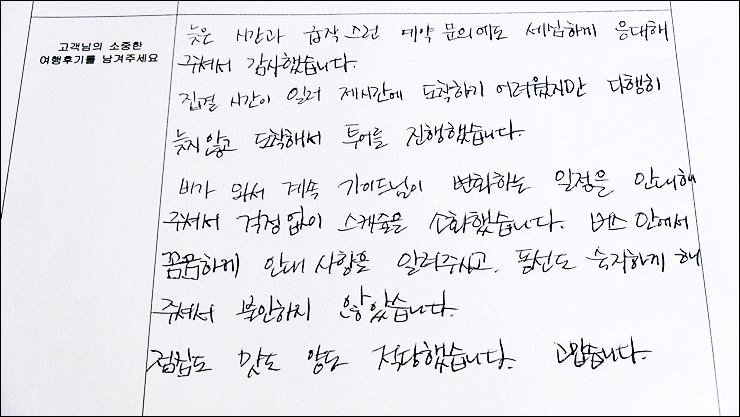 고객님의 소중한
여행후기를 남겨주세요
늦은 시간과 급작스런 예약 문의에도 세심하게 응대해
주셔서 감사했습니다.
집결 시간이 일러 제시간에 도착하기 어려웠지만 다행히
늦지 않고 도착해서 투어를 진행했습니다.
비가 와서 계속 가이드님이 변화하는 일정을 안내해
주셔서 걱정없이 스케줄을 소화했습니다. 버스 안에서
꼼꼼하게 안내 사항을 알려주시고, 동선도 숙지하게 해
주셔서 불안하지 않았습니다.
점심도 맛도 양도 적당했습니다. 고맙습니다.